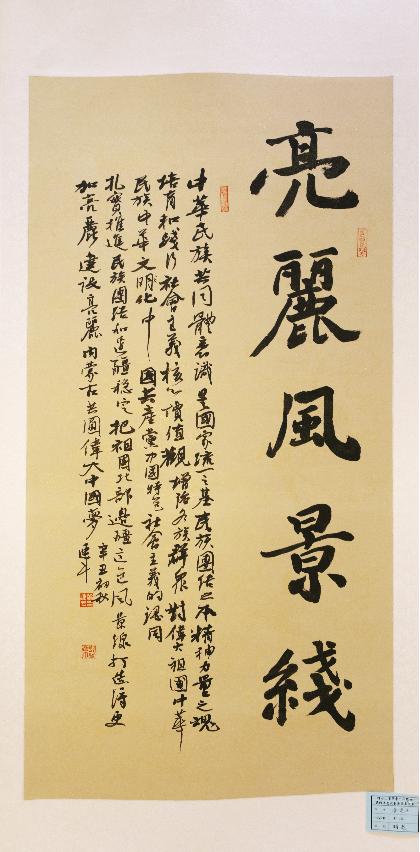 亮麗風景綫
中華民族共同體意識是國家統一之基民族團結之本精神力量之魂
培育和踐行社會主義核心價值觀增強各族群眾對偉大祖國中華
民族中華文明化中國共產黨力國特色社會主義的認同
扎實推進民族團結和邊疆穩定把祖國北部邊疆這色風景線打造得更
加亮麗建設亮麗內蒙古共圓偉大中國夢
辛丑初秋